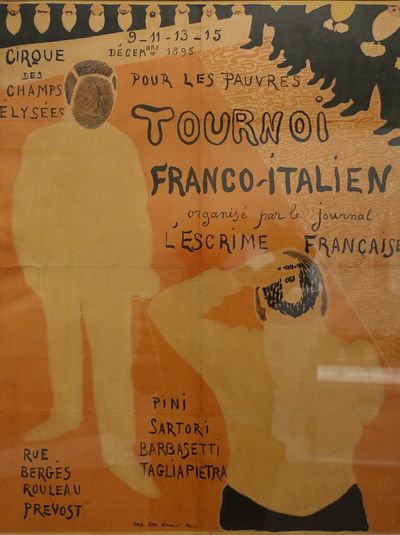 9_11-13-15
DÉCEMBRE 1895
CIRQUE
DES
CHAMPS
ELYSÉES
POUR LES PAUVRES
TOURNOI
FRANCO-ITALIEN
organisé par le journal
L'ESCRIME FRANÇAISE
PINI
SARTORI
BARBASETTI
TAGLIAPIETRA
RUE
BERGÈS
ROULEAU
PREVOST
Imp. Paris